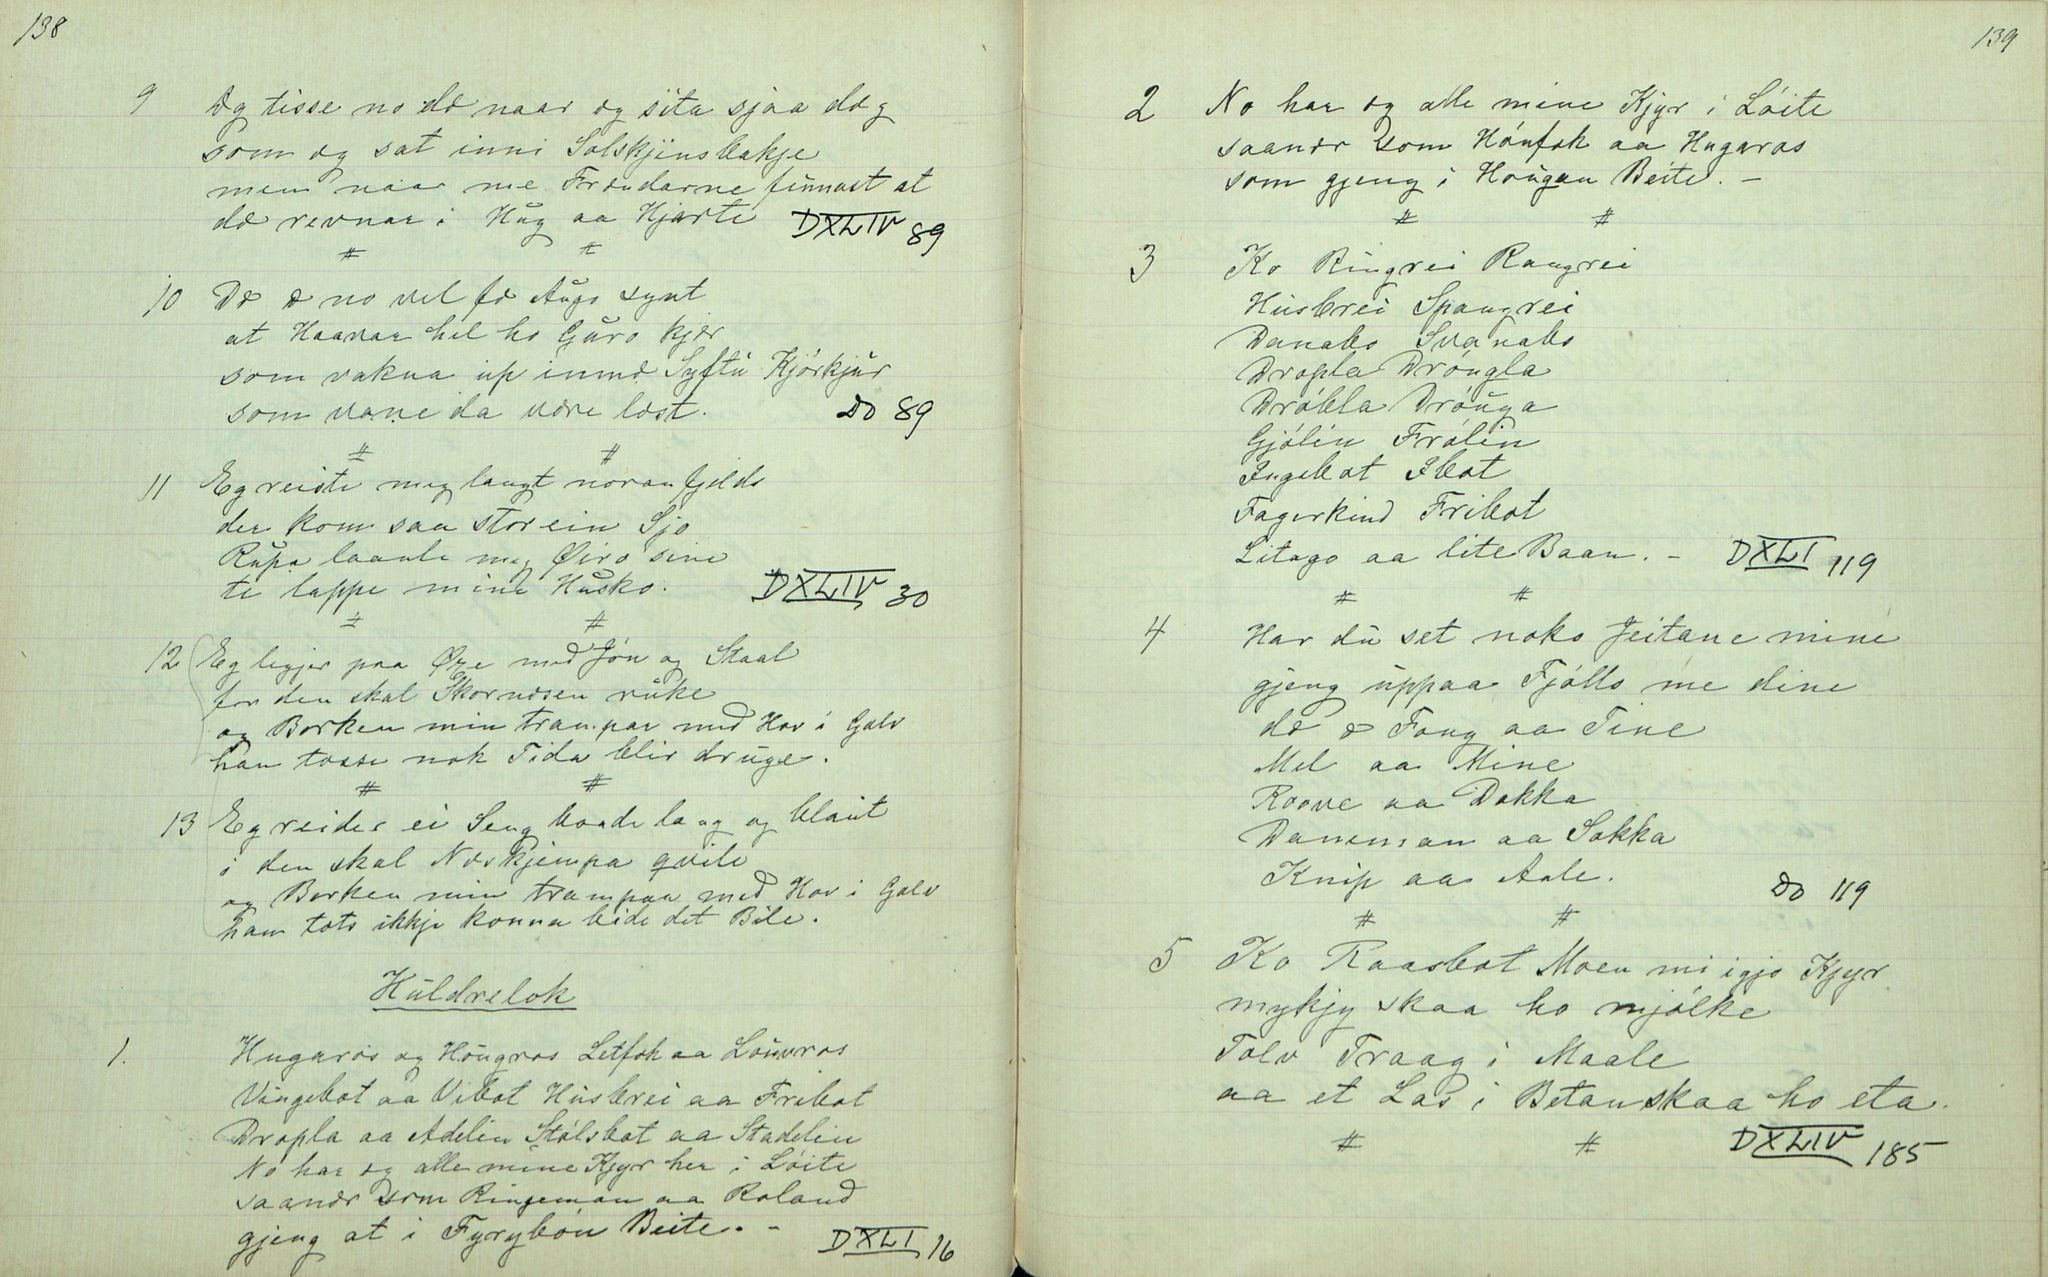 138
9 Dg tisse no dæ naar eg sita sjaa dæg
som eg sat inni Solskjinsbakje
men naar me Frændarne finnast at
dæ revnar i Hŭg aa Hjarte DXLIV 89
# #
10 Dæ æ no vel fæ Aŭgo synt
at Haavar hel ho Gŭro kjær
som vakna up innmæ Syftŭ Kjórkjŭr
som vane da være læst. Do 89
# #
11 Eg reiste meg langt noranfjelds
der kom saa stor ein Sjo
Rŭpa laante meg Øiro sine
te lappe mine Hŭsko. DXLIV 30
# #
12 Eg ligjer paa Øre med Jón og Staal
for den skal Skornæsen rŭke
og Borken min trampar med Hov i Golv
han tosse nok Tida blir drŭge.
# #
13 Eg reider ei Seng baade lang og blaŭt
i den skal Næskjempa qvile
og Borken min trampaa med Hov i Golv
han tots ikkje konna bide det Bile.
Hŭldrelok
1. Hugaros og Hóugros Letfok aa Loŭvros
Vingebot aa Vibot Hŭsbrei aa Fribot
Dropla aa Adelin Stólsbot aa Stadelin
No har eg alle mine Kjyr her i Lóite
saanær som Ringeman aa Roland
gjeng at i Fyrybón Beite. - DXLI 16
139
2 No har eg alle mine Kjyr i Lóite
saanær som Hónfok aa Hugaros
som gjeng i Hoŭgan Beite. -
# #
3 Ko Ringrei Rangrei
Hŭsbrei Spangrei
Danabo Svanabo
Dropla Dróngla
Dróbla Dróŭga
Gjólin Frólin
Ingebot Ibot
Fagerkind Fribot
Litago aa lite Baan. - DXLI 119
# #
4 Har dŭ set noko Jeitane mine
gjeng ŭppaa Fjóllo me dine
dæ æ Fong aa Tine
Mel aa Mine
Roove aa Dokka
Daneman aa Sokka
Knip aa Aale. Do 119
# #
5 Ko Raasbot Moen mi igjo Kjyr
mykjy skaa ho mjólke
Tolv Traag i Maale
aa et Las i Betan skaa ho eta.
# # DXLIV 185